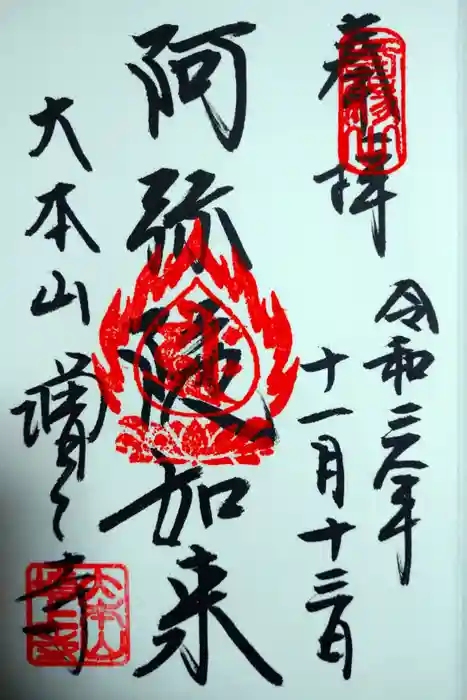 拝
令和三年
十一月十三日
阿弥陀如来
大本山増上寺
大本山
増上寺